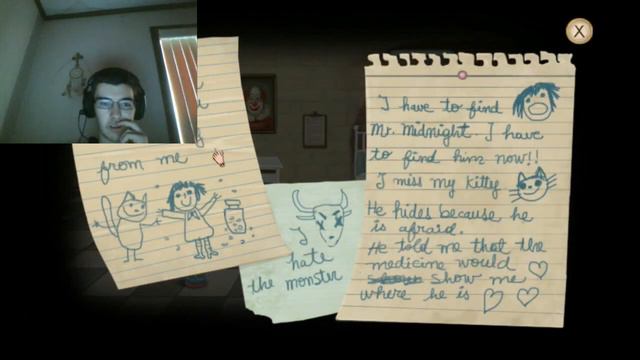 from me
I
hate
the monster
I have to find
Mr. Midnight. I have
to find him now!!
I miss my kitty
He hides because he
is afraid.
He told me that the
medicine would
show me
where he is
X